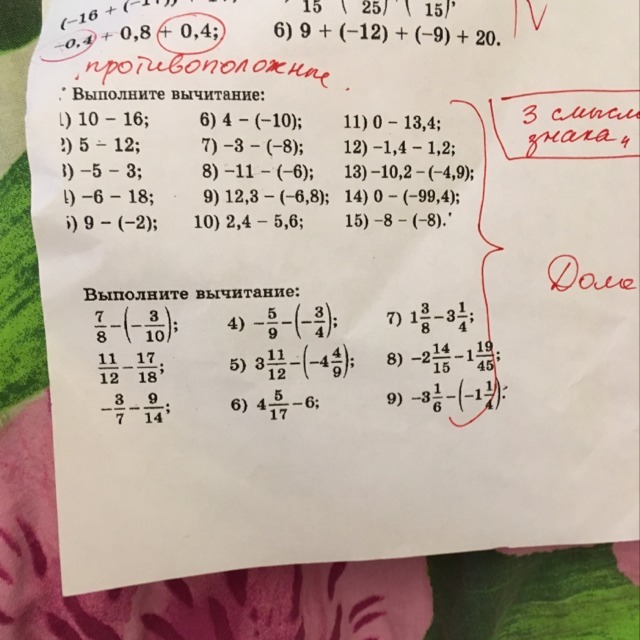 (−16 + (−
15 ( 25) ( 15)'
−0,4 + 0,8 + 0,4;
6) 9 + (−12) + (−9) + 20.
противоположные
Выполните вычитание:
1) 10 − 16; 6) 4 − (−10); 11) 0 − 13,4;
2) 5 − 12; 7) −3 − (−8); 12) −1,4 − 1,2;
3) −5 − 3; 8) −11 − (−6); 13) −10,2 − (−4,9);
4) −6 − 18; 9) 12,3 − (−6,8); 14) 0 − (−99,4);
5) 9 − (−2); 10) 2,4 − 5,6; 15) −8 − (−8).
3 смысл
знака „
Дома
Выполните вычитание:
7/8 − (−3/10); 4) −5/9 − (−3/4); 7) 1 3/8 − 3 1/4;
11/12 − 17/18; 5) 3 11/12 − (−4 4/9); 8) −2 14/15 − 1 19/45;
−3/7 − 9/14; 6) 4 5/17 − 6; 9) −3 1/6 − (−1 1/4).